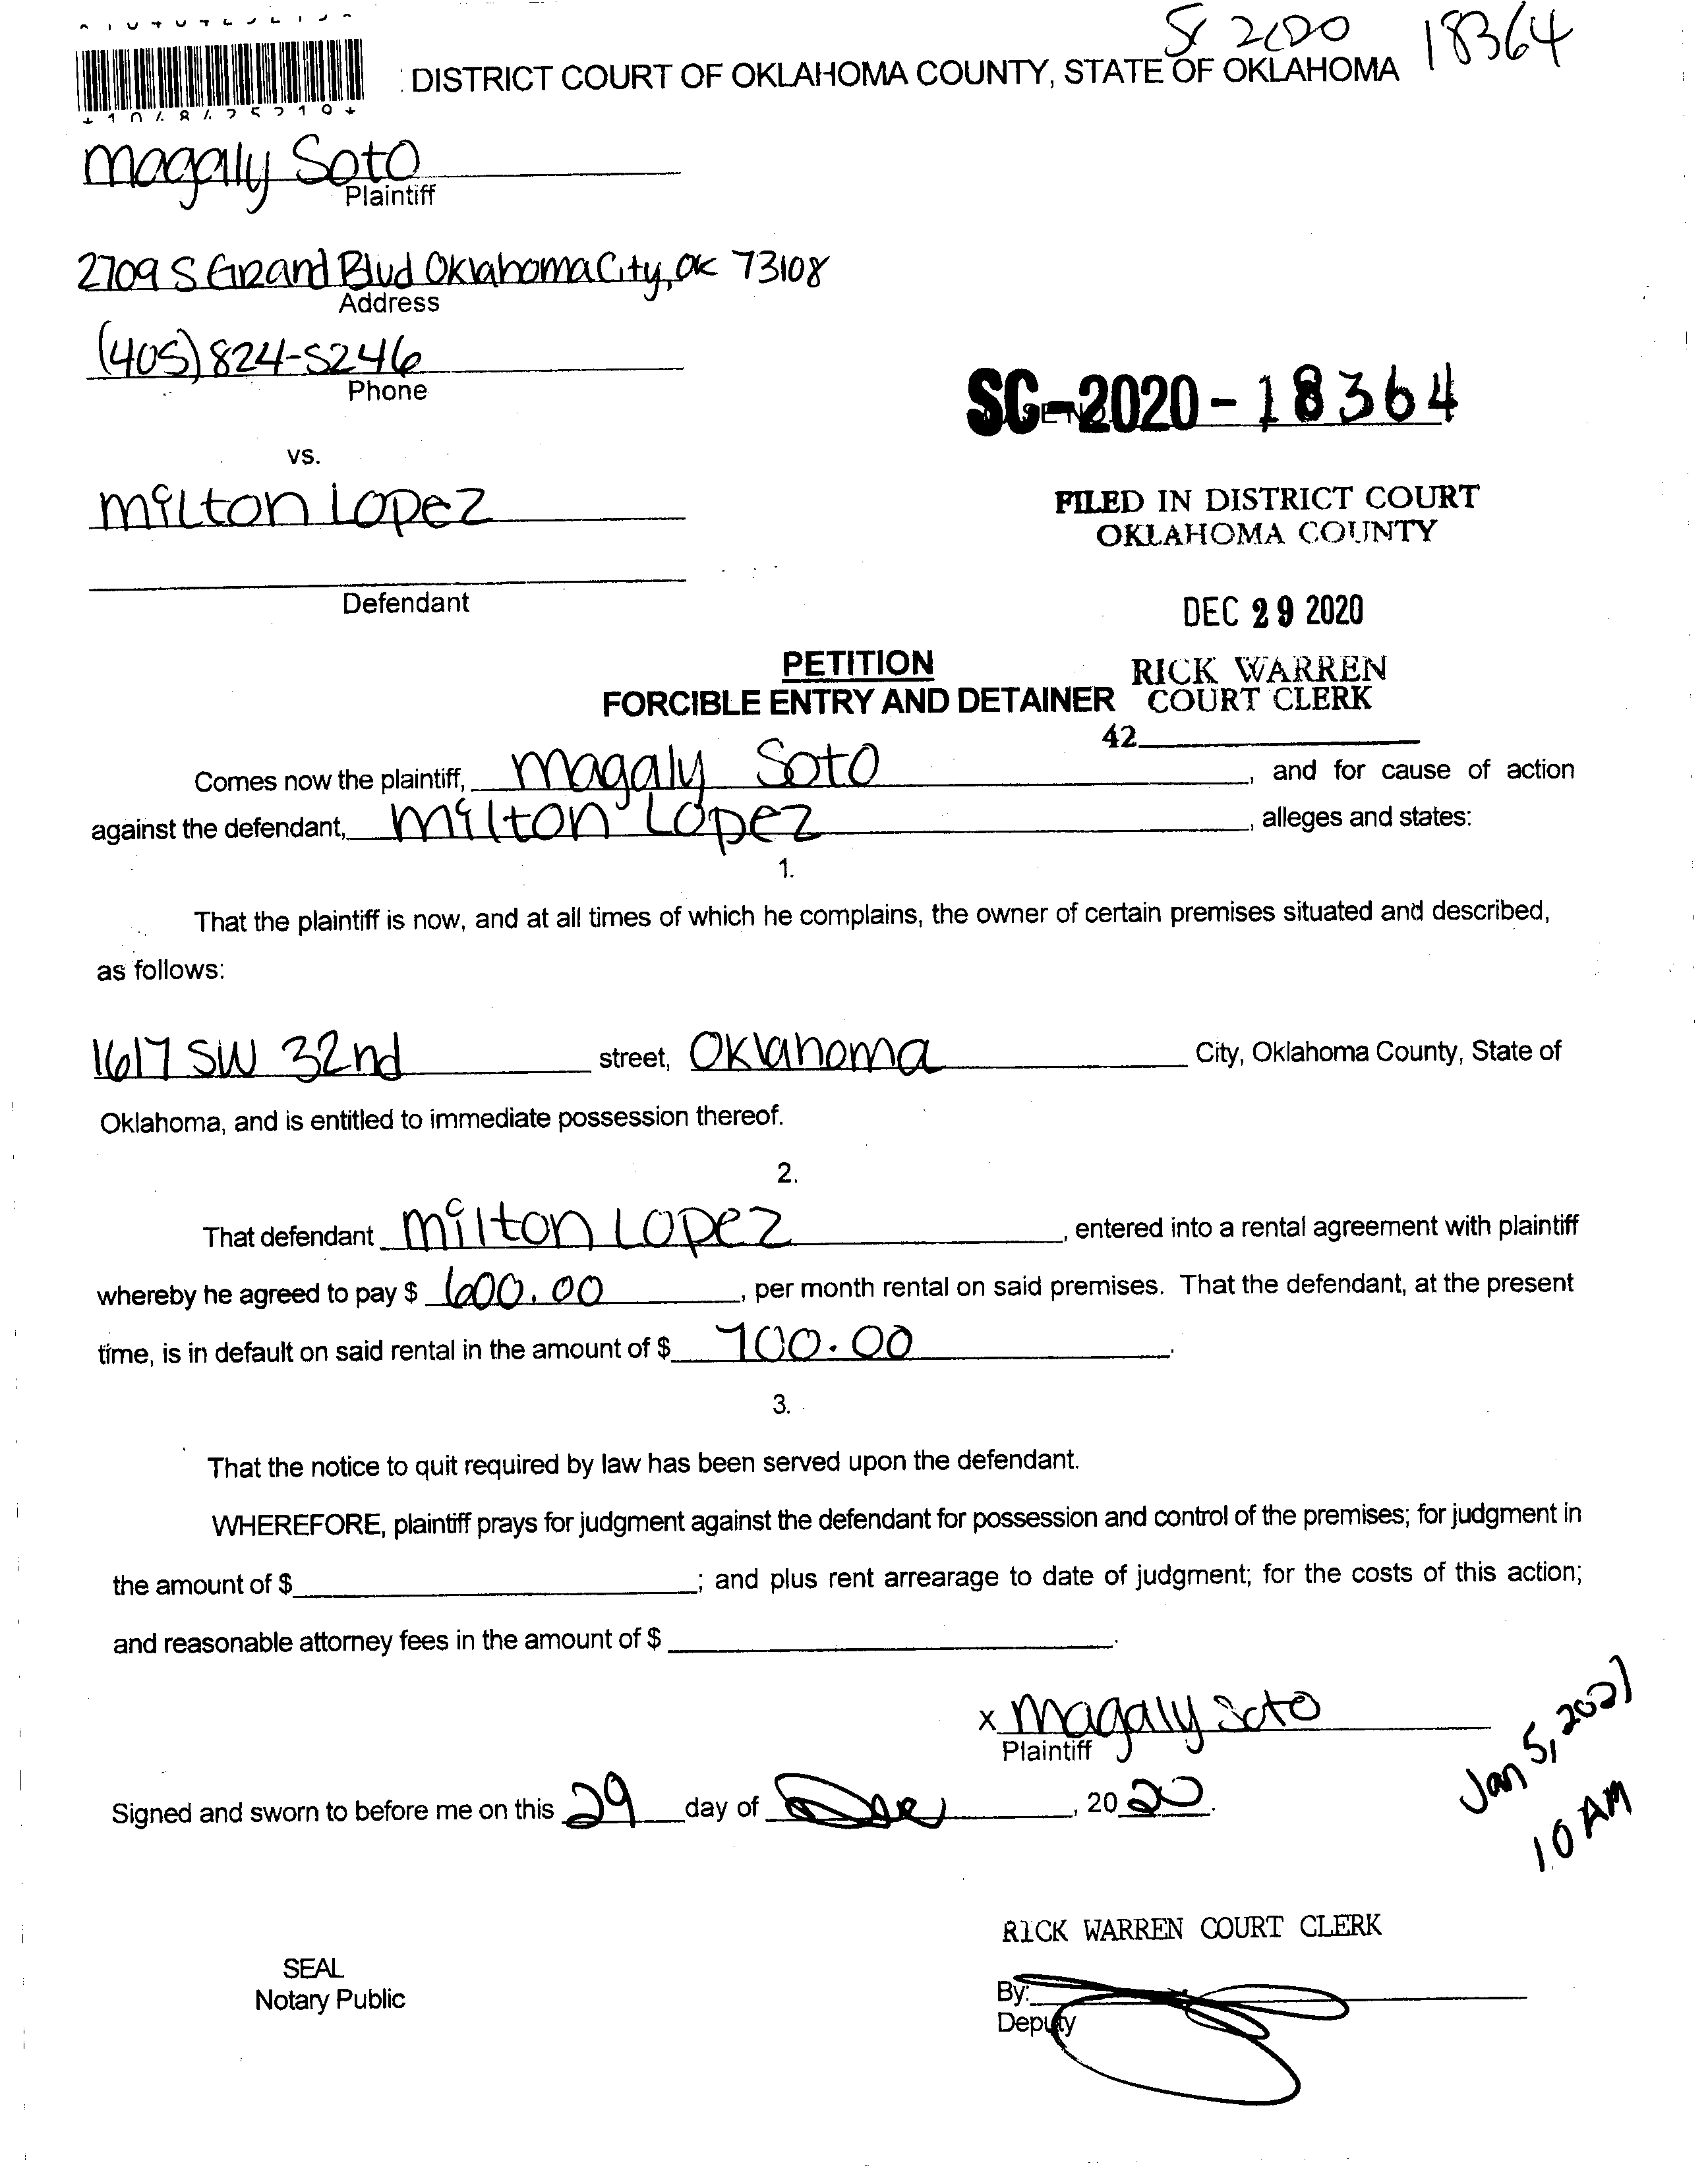 SC 2020 18364
DISTRICT COURT OF OKLAHOMA COUNTY, STATE OF OKLAHOMA
Magaly Soto
Plaintiff
2709 S Grand Blvd Oklahoma City, OK 73108
Address
(405) 824-5246
Phone
SC-2020-18364
vs.
Milton Lopez
FILED IN DISTRICT COURT
OKLAHOMA COUNTY
Defendant
DEC 29 2020
PETITION
RICK WARREN
FORCIBLE ENTRY AND DETAINER
COURT CLERK
42
Comes now the plaintiff, Magaly Soto, and for cause of action
against the defendant, Milton Lopez, alleges and states:
1.
That the plaintiff is now, and at all times of which he complains, the owner of certain premises situated and described,
as follows:
1617 SW 32nd street, Oklahoma City, Oklahoma County, State of
Oklahoma, and is entitled to immediate possession thereof.
2.
That defendant Milton Lopez, entered into a rental agreement with plaintiff
whereby he agreed to pay $ 600.00, per month rental on said premises. That the defendant, at the present
time, is in default on said rental in the amount of $ 700.00.
3.
That the notice to quit required by law has been served upon the defendant.
WHEREFORE, plaintiff prays for judgment against the defendant for possession and control of the premises; for judgment in
the amount of $ ; and plus rent arrearage to date of judgment; for the costs of this action;
and reasonable attorney fees in the amount of $ .
x Magaly Soto
Plaintiff
Jan 5, 2021
10 AM
Signed and sworn to before me on this 29 day of Dec, 2020.
RICK WARREN COURT CLERK
SEAL
Notary Public
By:
Deputy